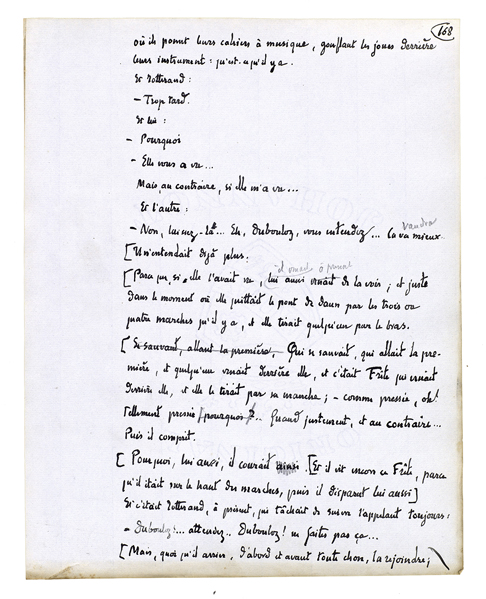 168
où ils posent leurs cahiers à musique, gonflant les joues derrière
leurs instrument : qu'est-ce qu'il y a.
Et Potterand :
– Trop tard.
Et lui :
– Pourquoi
– Elle vous a vu...
Mais, au contraire, si elle m'a vu...
Et l'autre :
– Non, laissez-là... Eh, Dubouloz, vous entendez... Ça va mieux
vaudra
[ Il n'entendait déjà plus.
il venait à présent
[ Parce que, si elle l'avait vu, lui aussi venait de la voir ; et juste
dans le moment où elle quittait le pont de danse par les trois ou
quatre marches qu'il y a, et elle tirait quelqu'un par le bras.
[ Se sauvant, allant la première, Qui se sauvait, qui allait la pre-
mière, et quelqu'un venait derrière elle, et c'était Frète qui venait
derrière elle, et elle le tirait par sa manche ; – comme pressée, oh !
tellement pressée / pourquoi ?.. Quand justement, et au contraire...
Puis il comprit.
[ Pourquoi, lui aussi, il courait ainsi. [ Et il vit encore ce Frète, parce
qu'il était sur le haut des marches, puis il disparut lui aussi ]
Et c'était Potterand, à présent, qui tâchait de suivre l'appelant toujours :
– Duboulo !... attendez.. Dubouloz ! ne faites pas ça...
[ Mais, quoi qu'il arrive, d'abord et avant toute chose, la rejoindre ;